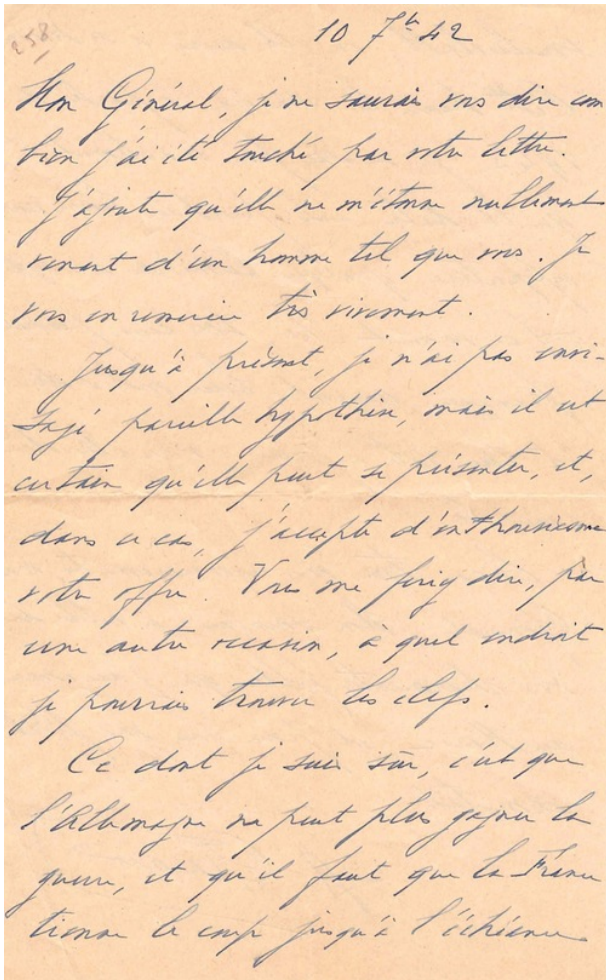 258
10 7bre 42
Mon Général, je ne saurais vous dire com
bien j'ai été touché par votre lettre.
J'ajoute qu'elle ne m'étonne nullement
venant d'un homme tel que vous. Je
vous en remercie très vivement.
Jusqu'à présent, je n'ai pas envi-
sagé pareille hypothèse, mais il est
certain qu'elle peut se présenter, et,
dans ce cas, j'accepte d'enthousiasme
votre offre. Vous me ferez dire, par
une autre occasion, à quel endroit
je pourrais trouver les clefs.
Ce dont je suis sûr, c'est que
l'Allemagne ne peut plus gagner la
guerre, et qu'il faut que la France
tienne le coup jusqu'à l'échéance